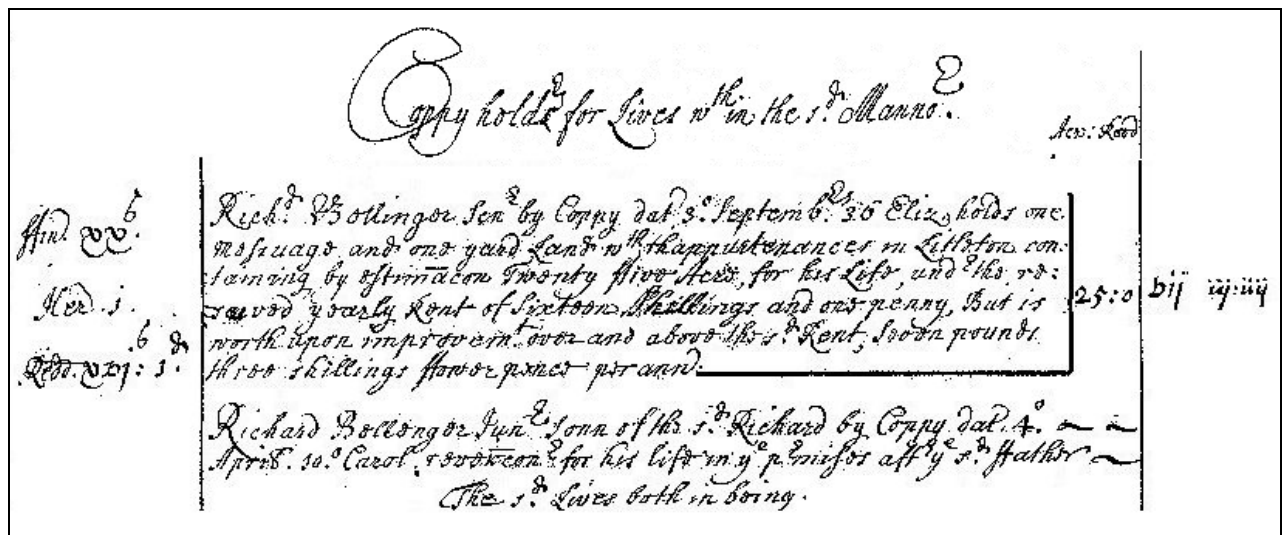 Coppy holds for Lives wth in the sd. Mannor.
Acr: Rood
ffin. xx.s
Her. j.
Redd. xvj:s j.d
Richd. Bellinger Senr by Coppy dat. 3o. Septembris. 36 Eliz, holds one
messuage and one yard Land wth thappurtenances in Litleton con:
taining by estimacon Twenty ffive Acrs, for his Life, and the re:
served yearly Rent of Sixteen Shillings and one penny, But is
worth upon improvemt. over and above the sd. Rent, Seven pounds
three shillings ffower pence per annd.
25:0
vij iij:iiij
Richard Bellenger Junr sonn of the sd. Richard by Coppy dat. 4o.
April. 10o. Carol, revercon for his life in ye premises aftr ye sd. ffather
The sd. Lives both in being.